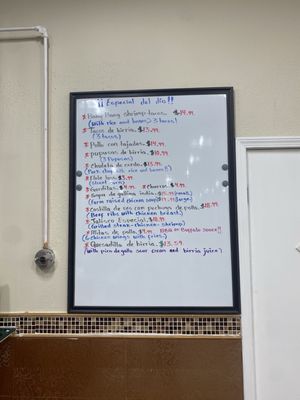 ¡¡Especial del día!!
* Bang Bang shrimp tacos.. $14.99
(With rice and beans) 3 tacos)
* Tacos de birria.. $13.99
(3 tacos)
* Pollo con tajadas.. $14.99
* pupusas de birria.. $10.99
(3 Pupusas)
* Chuleta de cerdo.. $13.99
(Pork chop with rice and beans!!)
* Elote loco $3.99
(Street corn)
* Gorditas.. $4.99 * Churros.. $4.99
* Sopa de gallina india..
(Farm raised chicken soup)
* Costilla de res con pechuga de pollo.. $18.99
(Beef ribs with chicken breast)
* Jalisco Especial.. $18.99
(Grilled steak-chicken-shrimp)
* Alitas de pollo.. $9.99 BBQ or Buffalo Sauce!!
(6 Chicken wings with fries)
* Quesadilla de birria.. $13.59
With pico de gallo sour cream and birria juice)